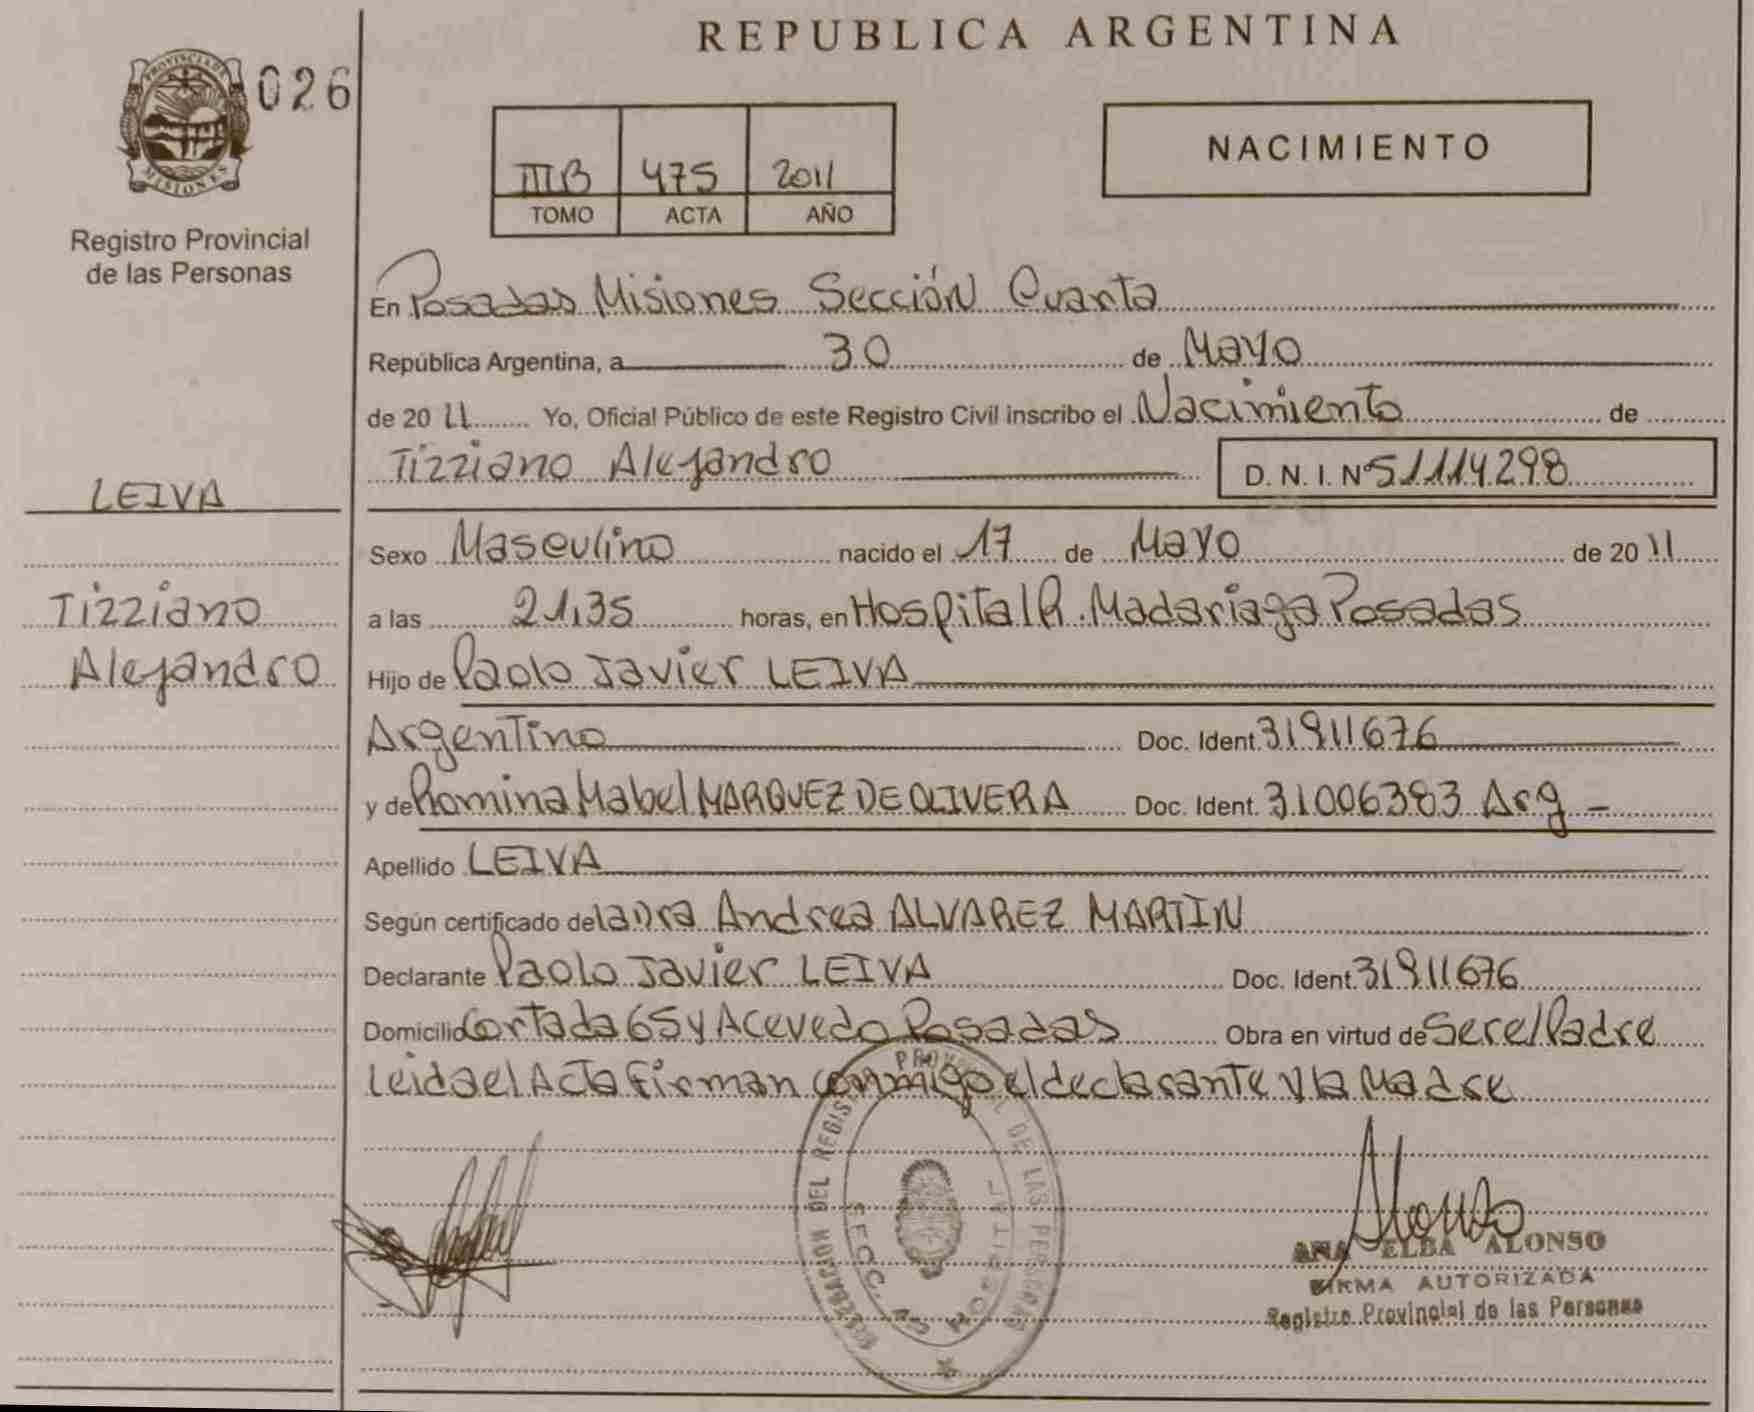 REPUBLICA ARGENTINA
PROVINCIA DE
MISIONES
026
Registro Provincial
de las Personas
IIIB 475 2011
TOMO ACTA AÑO
NACIMIENTO
En Posadas Misiones Sección Cuarta
República Argentina, a 30 de Mayo
de 2011 Yo, Oficial Público de este Registro Civil inscribo el Nacimiento de
Tizziano Alejandro D. N. I. Nº 51114298
LEIVA
Tizziano
Alejandro
Sexo Masculino nacido el 17 de Mayo de 2011
a las 21,35 horas, en Hospital R. Madariaga Posadas
Hijo de Paolo Javier LEIVA
Argentino Doc. Ident. 31911676
y de Romina Mabel MARQUEZ DE OLIVERA Doc. Ident. 31006383 Arg -
Apellido LEIVA
Según certificado de la Dra Andrea ALVAREZ MARTIN
Declarante Paolo Javier LEIVA Doc. Ident. 31911676
Domicilio Cortada 65 y Acevedo Posadas Obra en virtud de Ser el Padre
Leida el Acta Firman conmigo el declarante y la Madre
DELEGACION DEL REGISTRO PROVINCIAL DE LAS PERSONAS
SECC. 4ª HOSPITAL
Alonso
ANA ELBA ALONSO
FIRMA AUTORIZADA
Registro Provincial de las Personas